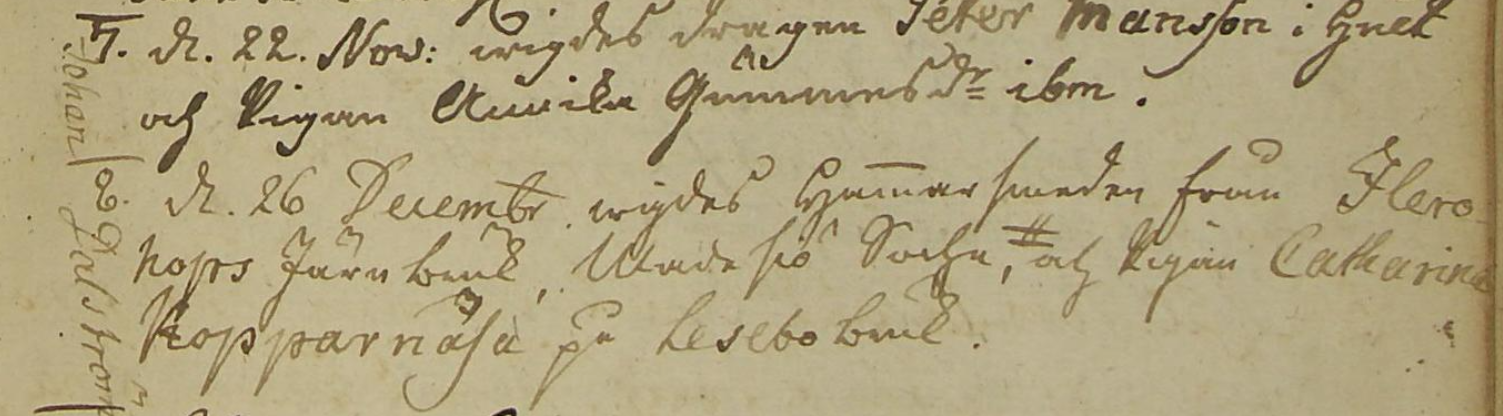 7. d. 22. Nov: wigdes dragon Peter Månsson i
och Pigan Annika Gummesdr ibm.
8. d. 26 Decembr wigdes Hammarsmeden från Flero-
hops Järnbruk, Madesjö Sochn, # och Pigan Catharina
Kopparnäsa på Lesebo bruk.
# Johan Dalström